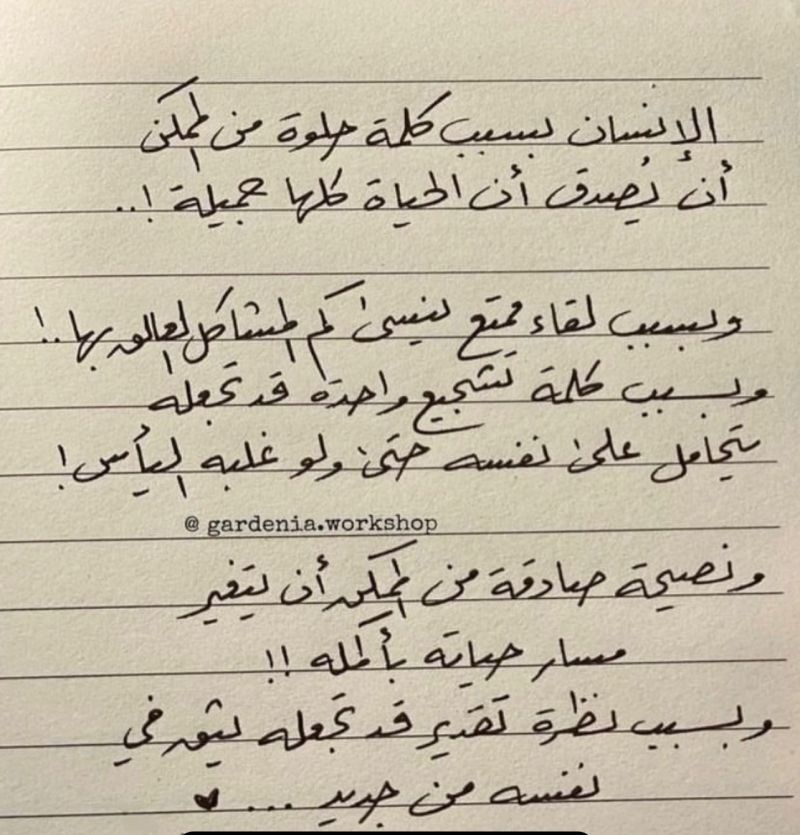 الإنسان بسبب كلمة حلوة من الممكن
أن يُصدق أن الحياة كلها جميلة !..
وبسبب لقاء ممتع ينسىٰ كم المشاكل العالق بها..!
وبسبب كلمة تشجيع واحدة قد تجعله
يتحامل علىٰ نفسه حتىٰ ولو غلبه اليأس !
@ gardenia.workshop
ونصيحة صادقة من الممكن أن يتغير
مسار حياته بأكمله !!
وبسبب نظرة تقدير قد تجعله يثق في
نفسه من جديد ... ♥